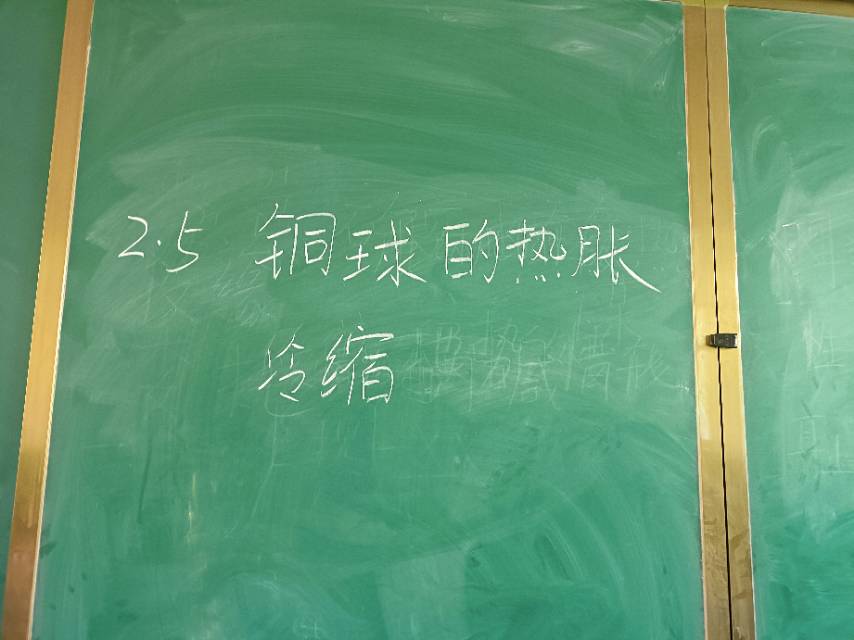 2.5 铜球的热胀
冷缩